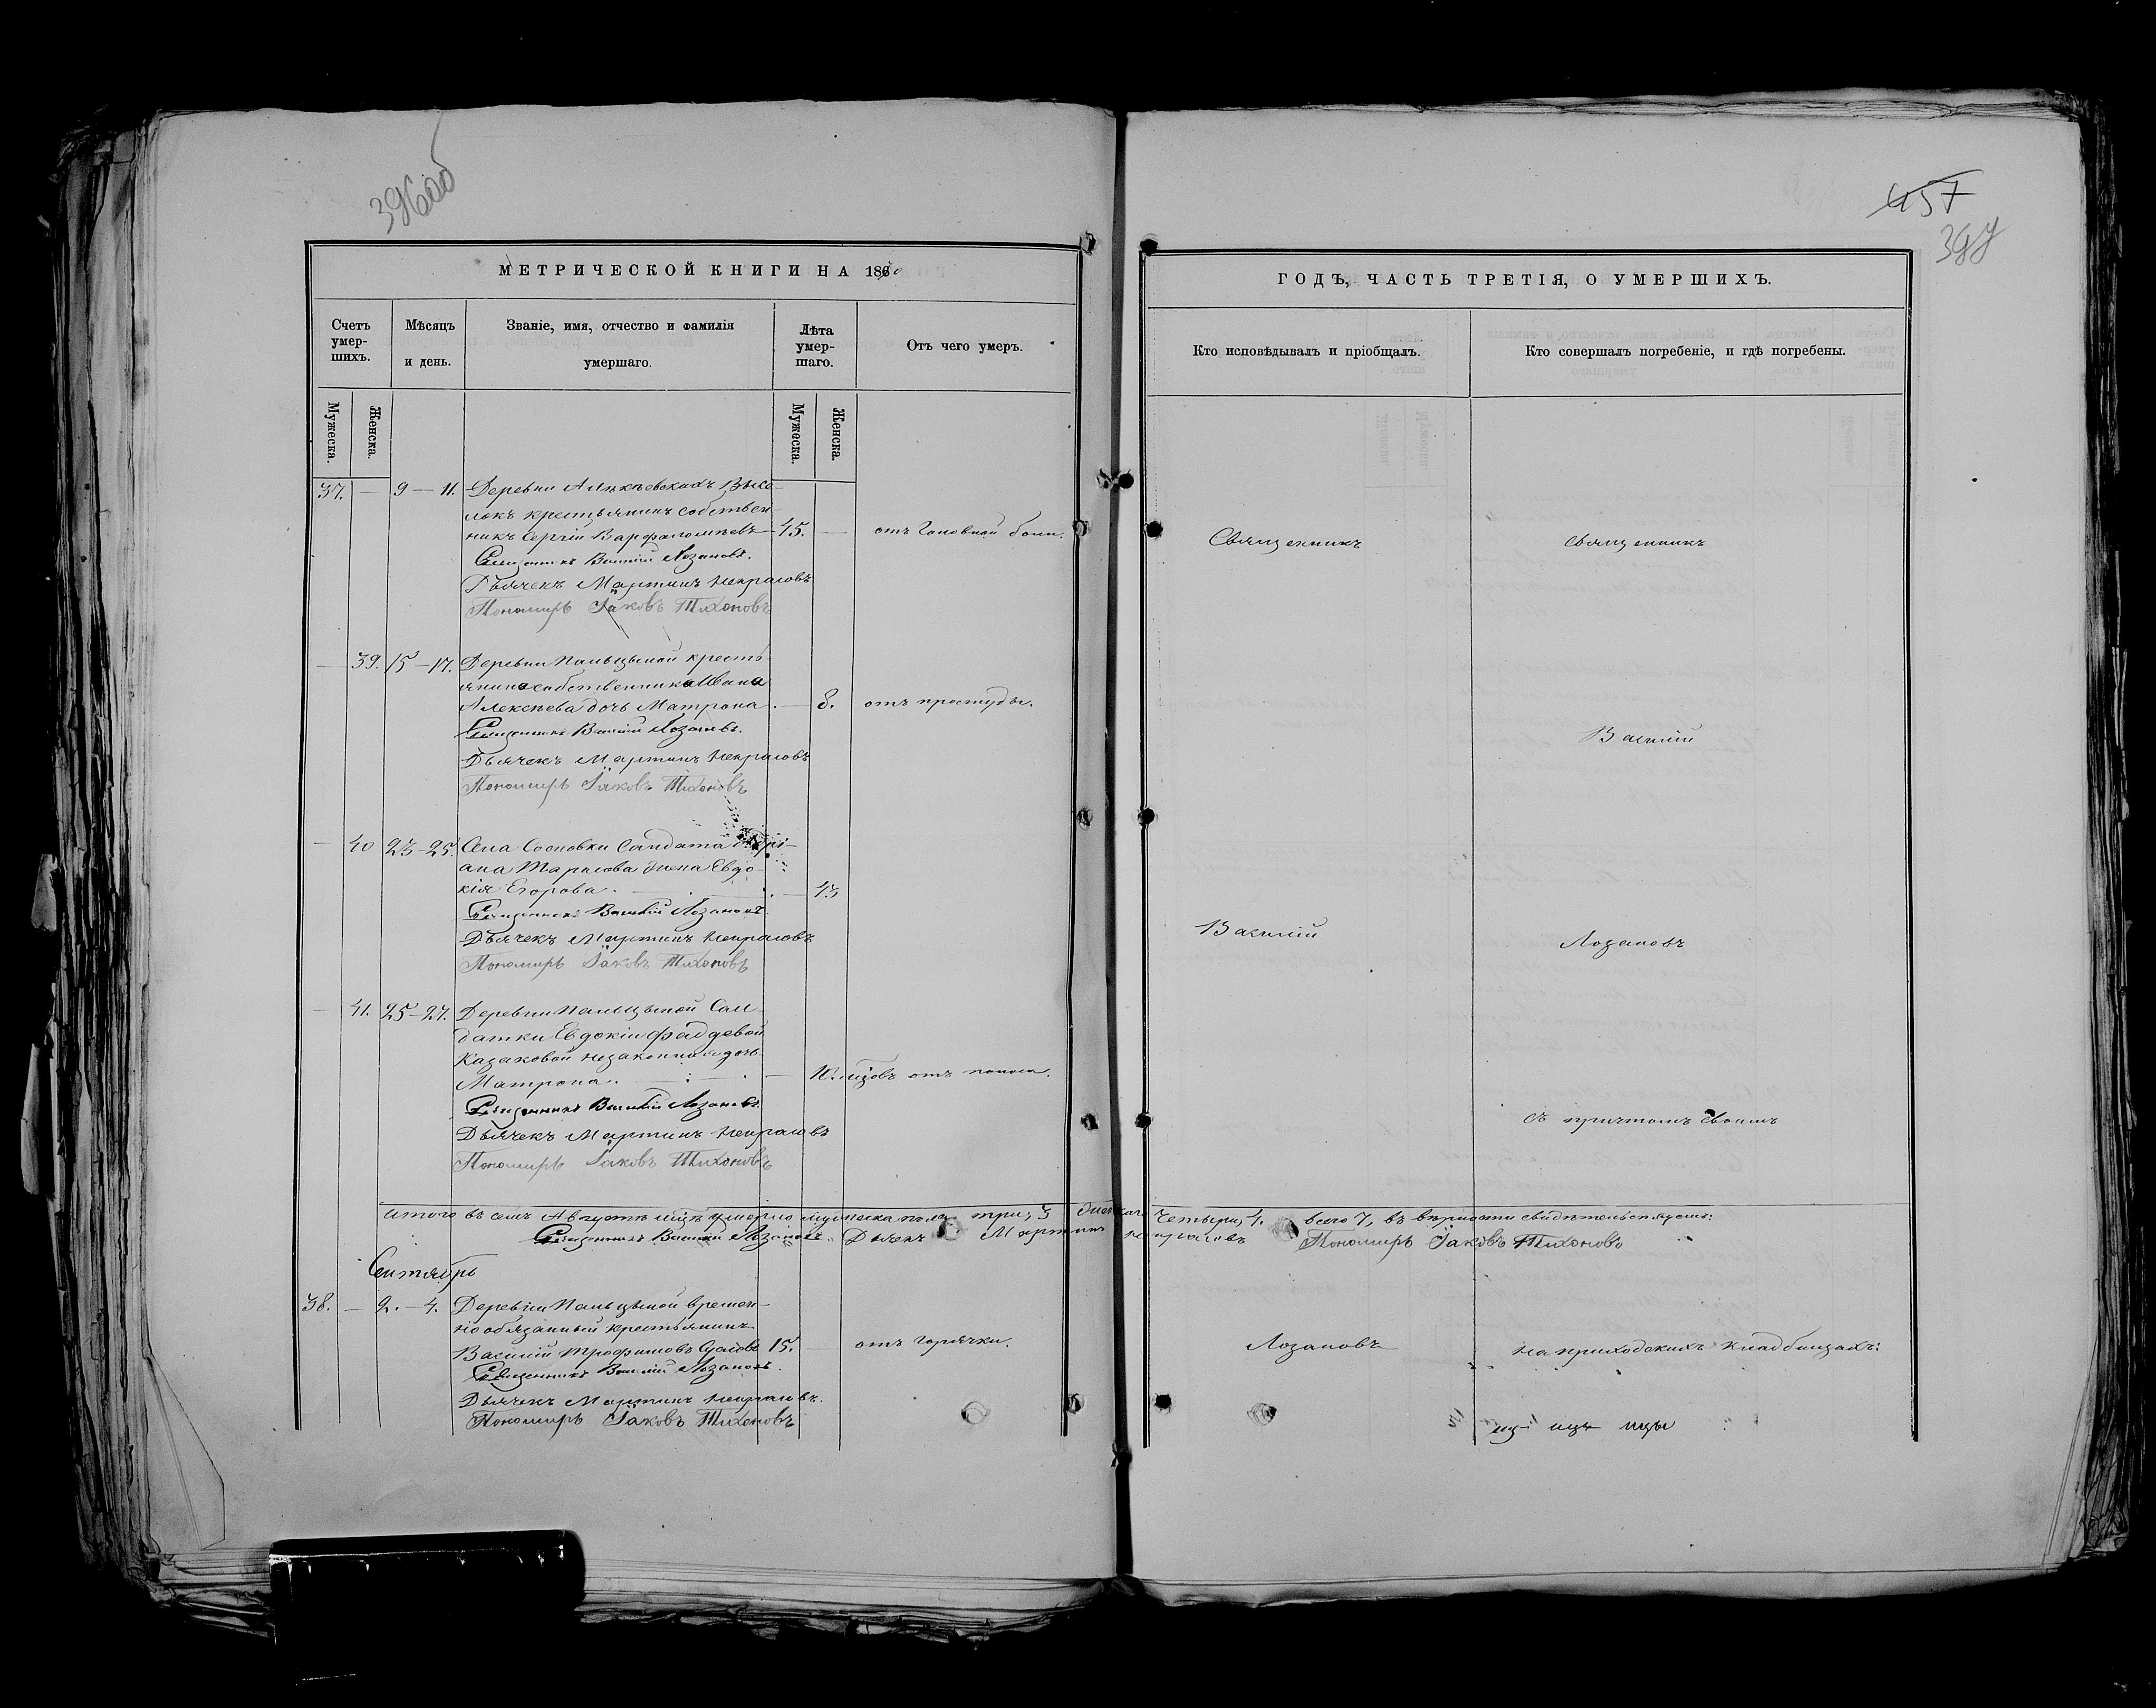 396об
МЕТРИЧЕСКОЙ КНИГИ НА 1870
Счетъ умер-шихъ.
Мѣсяцъ и день.
Званіе, имя, отчество и фамилія умершаго.
Лѣта умер-шаго.
Отъ чего умеръ.
Мужеска.
Женска.
Мужеска.
Женска.
37. — 9 — 11. Деревни Алѣкѣевскихъ Высе-
локъ крестьянинъ собствен-
никъ Сергій Варфаломѣевъ 45. — отъ Головной боли.
Священникъ Василій Лозановъ.
Дьячекъ Мартинъ Некрасовъ
Пономарь Іаковъ Тихоновъ
— 39. 15 — 17. Деревни Пальцыной кресть-
янина собственника Ивана
Алексѣева дочь Матрона. — 8. отъ простуды.
Священникъ Василій Лозановъ.
Дьячекъ Мартинъ Некрасовъ
Пономарь Іаковъ Тихоновъ
— 40 23 — 25. Села Сосновки Солдата
Тарасова жена Евдо-
кія Егорова. — 43
Священникъ Василій Лозановъ
Дьячекъ Мартинъ Некрасовъ
Пономарь Іаковъ Тихоновъ
— 41. 25 — 27. Деревни Пальцыной Сол-
датки Евдокіи Фаддевой
Казаковой незаконная дочь
Матрона. — отъ поноса.
Священникъ Василій Лозановъ
Дьячекъ Мартинъ Некрасовъ
Пономарь Іаковъ Тихоновъ
Итого въ семъ Августѣ мцѣ умерло мужеска пола три, 3 женска четыре, 4. всего 7, въ вѣрности свидѣтельствуемъ:
Священникъ Василій Лозановъ. Дьячекъ Мартинъ Некрасовъ Пономарь Іаковъ Тихоновъ
Сентябрь
38. — 2. — 4. Деревни Пальцыной времен-
но обязанный крестьянинъ
Василій Трофимовъ 15. отъ горячки.
Священникъ Василій Лозановъ.
Дьячекъ Мартинъ Некрасовъ.
Пономарь Іаковъ Тихоновъ
457
397
ГОДЪ, ЧАСТЬ ТРЕТІЯ, О УМЕРШИХЪ.
Кто исповѣдывалъ и пріобщалъ.
Кто совершалъ погребеніе, и гдѣ погребены.
Священникъ
Василій
Лозановъ
священникъ
Василій
Лозановъ
съ причтомъ своимъ
на приходскихъ кладбищахъ: